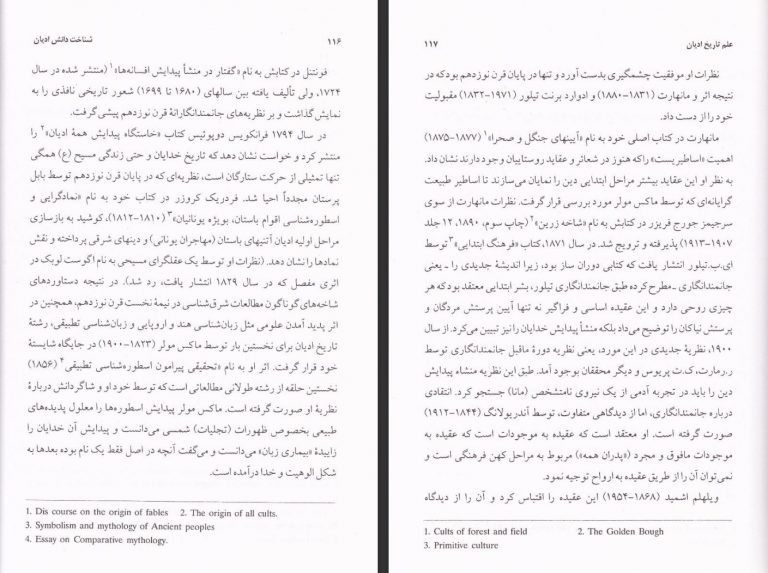 ۱۱۶ شناخت دانش ادیان
فونتنل در کتابش به نام «گفتار در منشأ پیدایش افسانه‌ها»۱ (منتشر شده در سال
۱۷۲۴، ولی تألیف یافته بین سالهای (۱۶۸۰ تا ۱۶۹۹) شعور تاریخی نافذی را به
نمایش گذاشت و بر نظریه‌های جانمندانگارانهٔ قرن نوزدهم پیشی گرفت.
در سال ۱۷۹۴ فرانکویس دوپوئیس کتاب «خاستگاه پیدایش همهٔ ادیان»۲ را
منتشر کرد و خواست نشان دهد که تاریخ خدایان و حتی زندگی مسیح (ع) همگی
تنها تمثیلی از حرکت ستارگان است، نظریه‌ای که در پایان قرن نوزدهم توسط بابل
پرستان مجدداً احیا شد. فردریک کروزر در کتاب خود به نام «نمادگرایی و
اسطوره‌شناسی اقوام باستان، بویژه یونانیان»۳ (۱۸۱۰-۱۸۱۲)، کوشید به بازسازی
مراحل اولیه ادیان آتنیهای باستان (مهاجران یونانی) و دینهای شرقی پرداخته و نقش
نمادها را نشان دهد. (نظرات او توسط یک عقلگرای مسیحی به نام اگوست لوبک در
اثری مفصل که در سال ۱۸۲۹ انتشار یافت، رد شد). در نتیجه دستاوردهای
شاخه‌های گوناگون مطالعات شرق‌شناسی در نیمهٔ نخست قرن نوزدهم، همچنین در
اثر پدید آمدن علومی مثل زبان‌شناسی هند و اروپایی و زبان‌شناسی تطبیقی، رشتهٔ
تاریخ ادیان برای نخستین بار توسط ماکس مولر (۱۸۲۳-۱۹۰۰) در جایگاه شایستهٔ
خود قرار گرفت. اثر او به نام «تحقیقی پیرامون اسطوره‌شناسی تطبیقی»۴ (۱۸۵۶)
نخستین حلقه از رشته طولانی مطالعاتی است که توسط خود او و شاگردانش دربارهٔ
نظریهٔ او صورت گرفته است. ماکس مولر پیدایش اسطوره‌ها را معلول پدیده‌های
طبیعی بخصوص ظهورات (تجلیات) شمسی می‌دانست و پیدایش آن خدایان را
زاییدهٔ «بیماری زبان» می‌دانست و می‌گفت آنچه در اصل فقط یک نام بوده بعدها به
شکل الوهیت و خدا درآمده است.
1. Dis course on the origin of fables 2. The origin of all cults.
3. Symbolism and mythology of Ancient peoples
4. Essay on Comparative mythology.
علم تاریخ ادیان ۱۱۷
نظرات او موفقیت چشمگیری بدست آورد و تنها در پایان قرن نوزدهم بود که در
نتیجه اثر و مانهارت (۱۸۳۱-۱۸۸۰) و ادوارد برنت تیلور (۱۹۷۱-۱۸۳۲) مقبولیت
خود را از دست داد.
مانهارت در کتاب اصلی خود به نام «آیینهای جنگل و صحرا»۱ (۱۸۷۷-۱۸۷۵)
اهمیت «اساطیر پست» را که هنوز در شعائر و عقاید روستاییان وجود دارند نشان داد.
به نظر او این عقاید بیشتر مراحل ابتدایی دین را نمایان می‌سازند تا اساطیر طبیعت
گرایانه‌ای که توسط ماکس مولر مورد بررسی قرار گرفت. نظرات مانهارت از سوی
سرجیمز جورج فریزر در کتابش به نام «شاخه زرین»۲ (چاپ سوم، ۱۸۹۰، ۱۲ جلد
۱۹۰۷-۱۹۱۳) پذیرفته و ترویج شد. در سال ۱۸۷۱، کتاب «فرهنگ ابتدایی»۳ توسط
ای.ب.تیلور انتشار یافت که کتابی دوران ساز بود، زیرا اندیشهٔ جدیدی را ـ یعنی
جانمندانگاری ـ مطرح کرده طبق جانمندانگاری تیلور، بشر ابتدایی معتقد بود که هر
چیزی روحی دارد و این عقیده اساسی و فراگیر نه تنها آیین پرستش مردگان و
پرستش نیاکان را توضیح می‌داد بلکه منشأ پیدایش خدایان را نیز تبیین می‌کرد. از سال
۱۹۰۰، نظریهٔ جدیدی در این مورد، یعنی نظریه دورهٔ ماقبل جانمندانگاری توسط
ر.رمارت، ک.ت پریوس و دیگر محققان بوجود آمد. طبق این نظریه منشاء پیدایش
دین را باید در تجربه آدمی از یک نیروی نامتشخص (مانا) جستجو کرد. انتقادی
درباره جانمندانگاری، اما از دیدگاهی متفاوت، توسط آندریولانگ (۱۸۴۴-۱۹۱۲)
صورت گرفته است. او معتقد است که عقیده به موجودات است که عقیده به
موجودات مافوق و مجرد («پدران همه») مربوط به مراحل کهن فرهنگی است و
نمی‌توان آن را از طریق عقیده به ارواح توجیه نمود.
ویلهلم اشمید (۱۸۶۸-۱۹۵۴) این عقیده را اقتباس کرد و آن را از دیدگاه
1. Cults of forest and field 2. The Golden Bough
3. Primitive culture